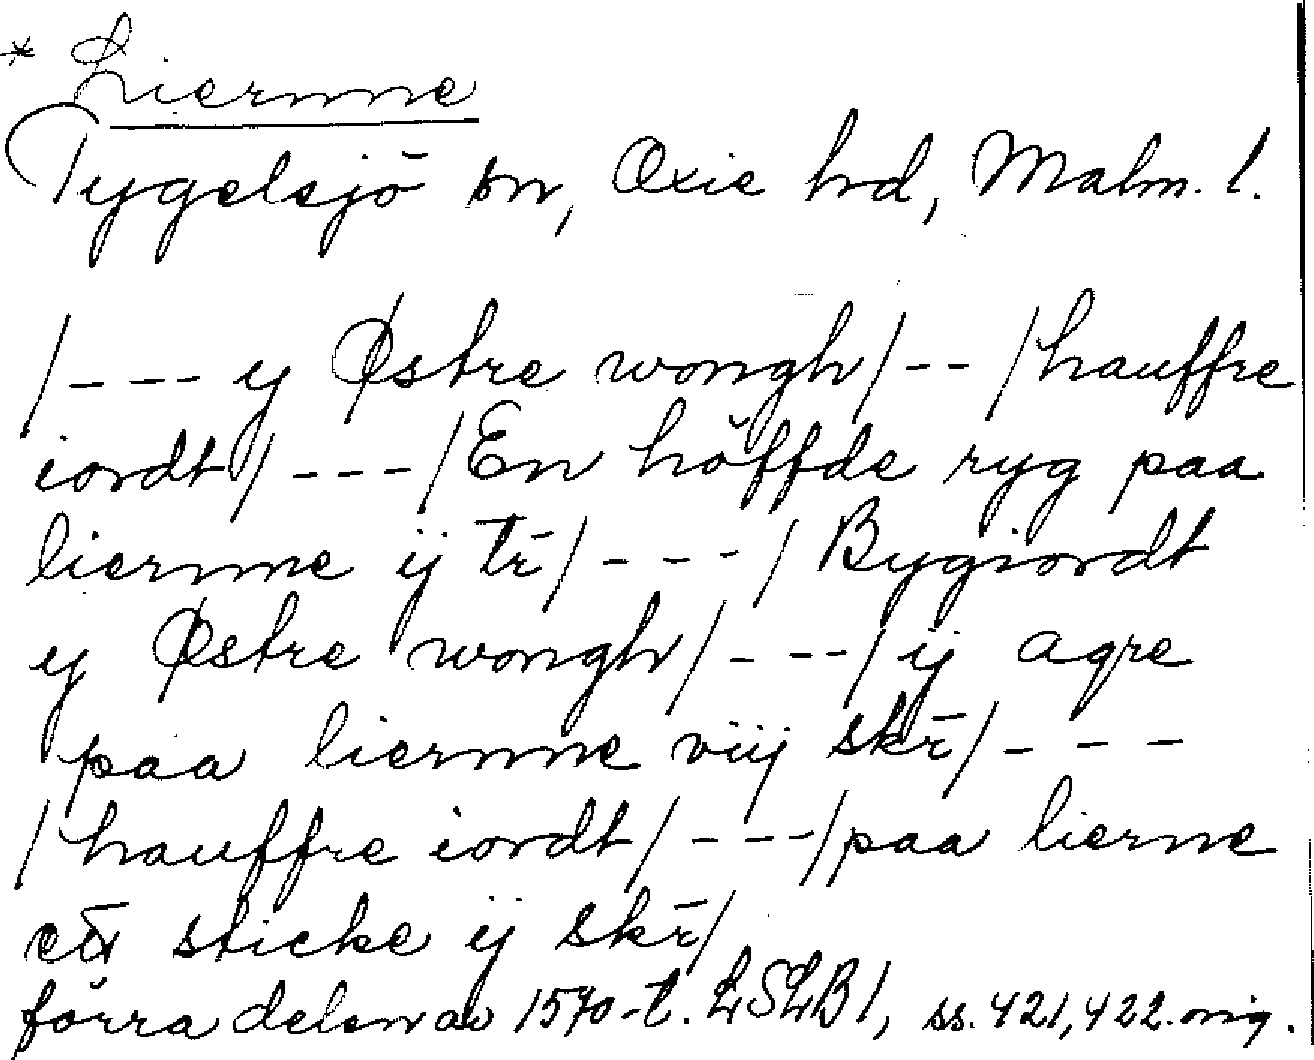 * Liermme
Tygelsjö sn, Oxie hd, Malm. l.
/--- y Østre wongh/--/hauffre
iordt/---/En höffde ryg paa
liermme ij tr̄/---/Bygiordt
y Østre wongh/---/ij agre
paa liermme viij skr̄/---
/hauffre iordt/---/paa lierme
ett sticke ij skr̄/
förra delen av 1570-t. LSLB1, ss. 421, 422. orig.